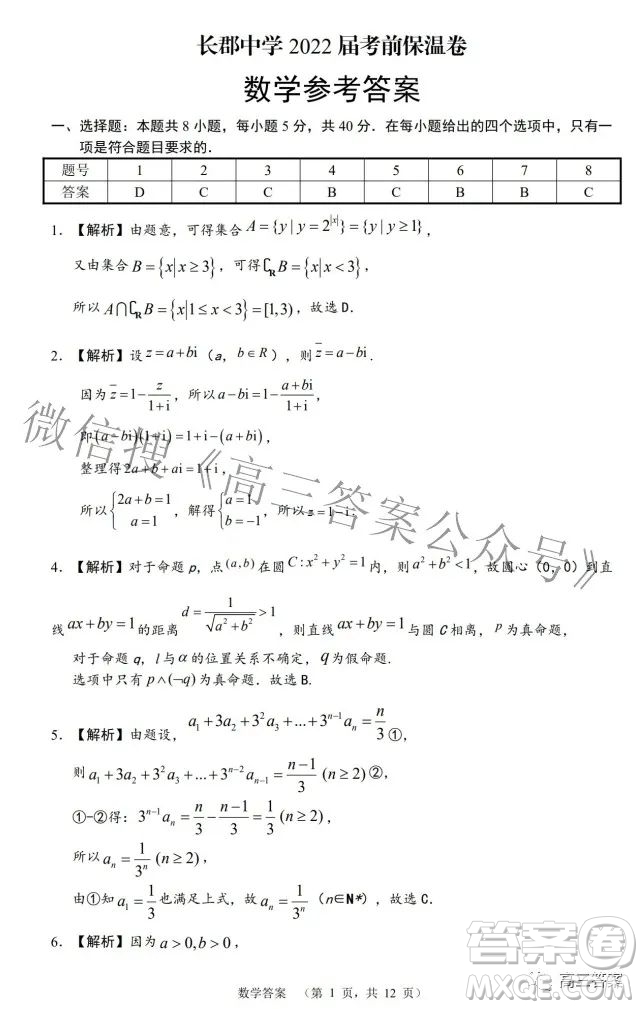 长郡中学 2022 届考前保温卷
数学参考答案
一、选择题：本题共 8 小题，每小题 5 分，共 40 分．在每小题给出的四个选项中，只有一
项是符合题目要求的．
题号 1 2 3 4 5 6 7 8
答案 D C C B C B B C
1. 【解析】由题意，可得集合 A={y|y=2^{|x|}}={y|y≥1}，
又由集合 B={x|x≥3}，可得∁_R B={x|x<3}，
所以 A∩∁_R B={x|1≤x<3}=[1,3)，故选 D．
2. 【解析】设 z=a+bi（a，b∈R），则 z̅=a−bi．
因为 z̅=1−z/(1+i)，所以 a−bi=1−(a+bi)/(1+i)，
即(a−bi)(1+i)=1+i−(a+bi)，
整理得2a+b+ai=1+i，
所以{2a+b=1 a=1，解得{a=1 b=−1，所以z=1−i．
4. 【解析】对于命题 p，点 (a,b) 在圆 C:x²+y²=1 内，则 a²+b²<1，故圆心（0，0）到直
线 ax+by=1 的距离 d=1/√(a²+b²)>1，则直线 ax+by=1 与圆 C 相离，p 为真命题，
对于命题 q，l 与 α 的位置关系不确定，q 为假命题．
选项中只有 p∧(¬q) 为真命题．故选 B.
5. 【解析】由题设，a₁+3a₂+3²a₃+...+3ⁿ⁻¹aₙ=n/3①，
则 a₁+3a₂+3²a₃+...+3ⁿ⁻²aₙ₋₁=(n−1)/3 (n≥2)②，
①-②得：3ⁿ⁻¹aₙ=n/3−(n−1)/3=1/3 (n≥2)，
所以 aₙ=1/3ⁿ (n≥2)，
由①知 a₁=1/3 也满足上式，故 aₙ=1/3ⁿ（n∈N*），故选 C．
6. 【解析】因为 a>0,b>0，
数学答案 （第 1 页，共 12 页）
微信搜《高三答案公众号》
答案卷
高三答案